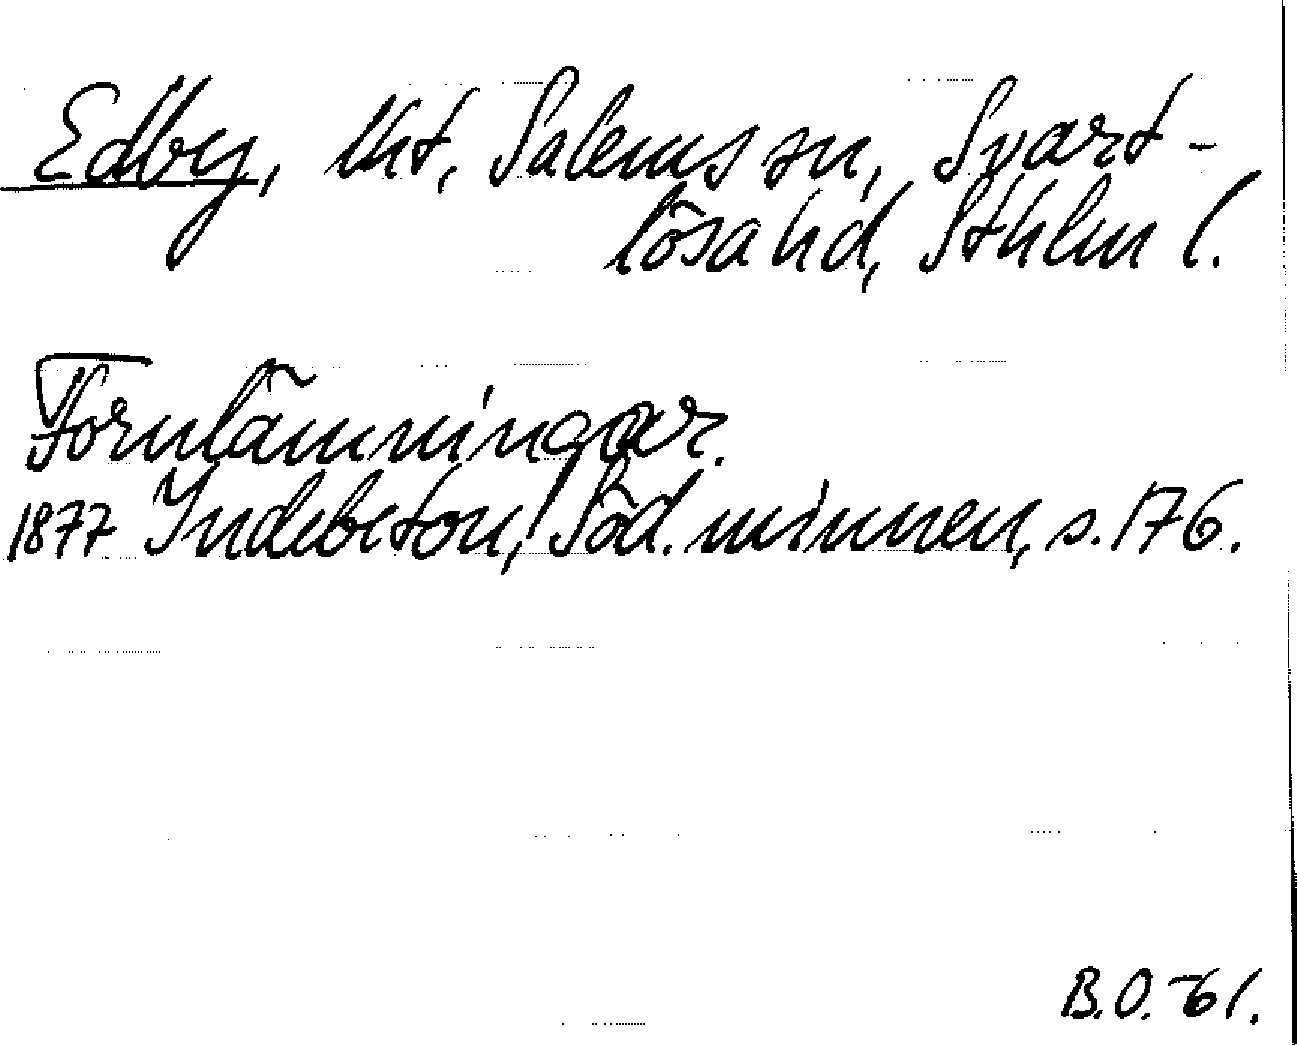 Edby, Utt, Salems sn, Svart-
lösa hd, Sthlm l.
Fornlämningar.
1877 Indebetou, Söd. minnen, s. 176.
B.O. -61.